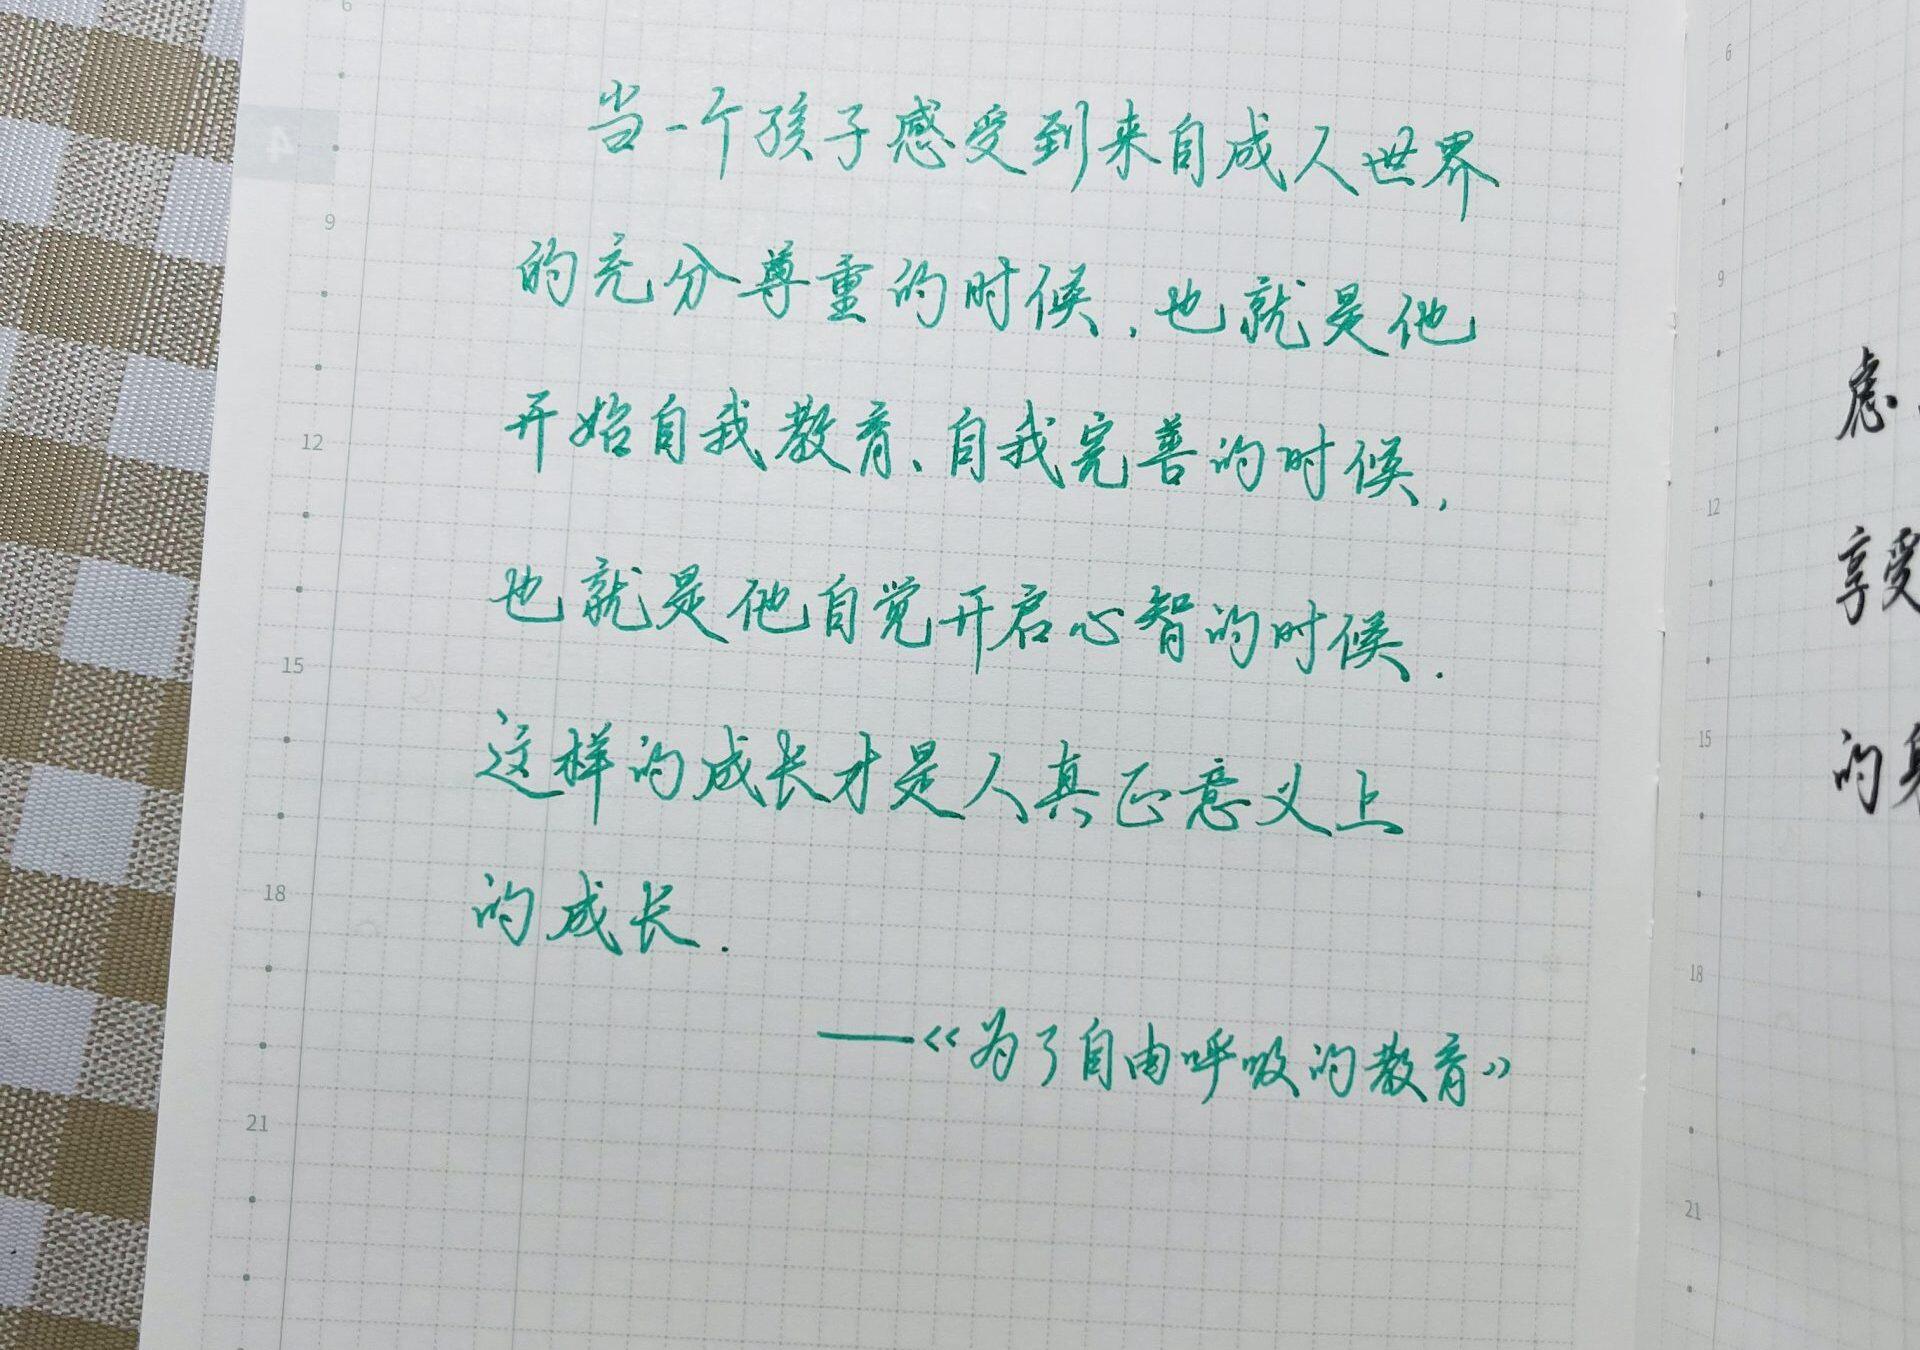 当一个孩子感受到来自成人世界
的充分尊重的时候,也就是他
开始自我教育、自我完善的时候,
也就是他自觉开启心智的时候.
这样的成长才是人真正意义上
的成长.
——《为了自由呼吸的教育》
4
6
9
12
15
18
21
6
9
12
15
18
21
虑.
享受
的